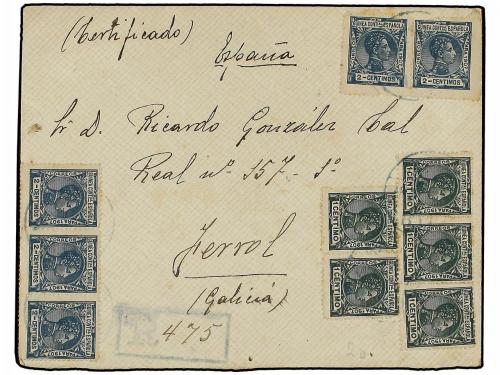 (Certificado)
España
Sr D. Ricardo González Cal
Real nº 157-1º
Ferrol
(Galicia)
475
GUINEA CONTIL ESPAÑOLA
2-CENTIMOS
2-CENTIMOS
CORREOS
PARA 1907
2-CENTIMOS
CORREOS
PARA 1907
2-CENTIMOS
CORREOS
PARA 1907
2-CENTIMOS
1 CENTIMO
1 CENTIMO
1 CENTIMO
1 CENTIMO
1 CENTIMO